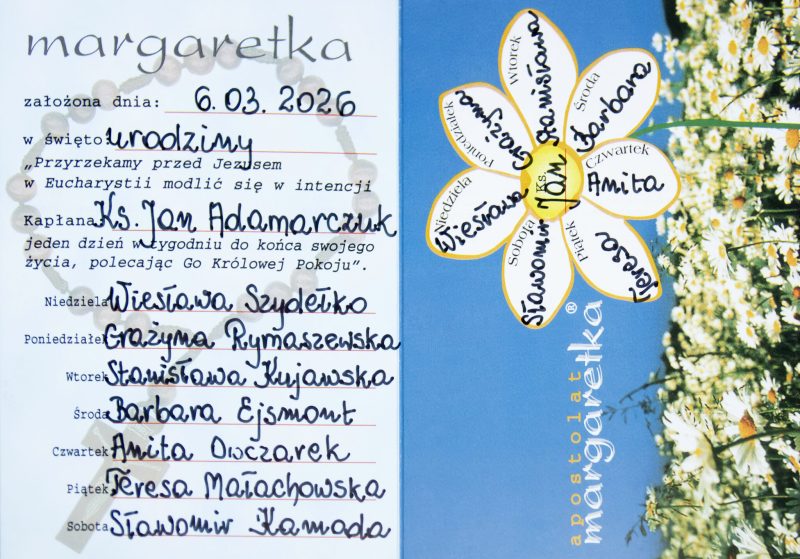 margaretka
założona dnia: 6.03.2026
w święto: urodziny
„Przyrzekamy przed Jezusem
w Eucharystii modlić się w intencji
Kapłana Ks. Jan Adamarczuk
jeden dzień w tygodniu do końca swojego
życia, polecając Go Królowej Pokoju”.
Niedziela Wiesława Szydełko
Poniedziałek Grażyna Rymaszewska
Wtorek Stanisława Kujawska
Środa Barbara Ejsmont
Czwartek Anita Owczarek
Piątek Teresa Małachowska
Sobota Sławomir Kamada
Niedziela Wiesława
Poniedziałek Grażyna
Wtorek Stanisława
Środa Barbara
Czwartek Anita
Piątek Teresa
Sobota Sławomir
Ks. Jan
apostolat
margaretka®